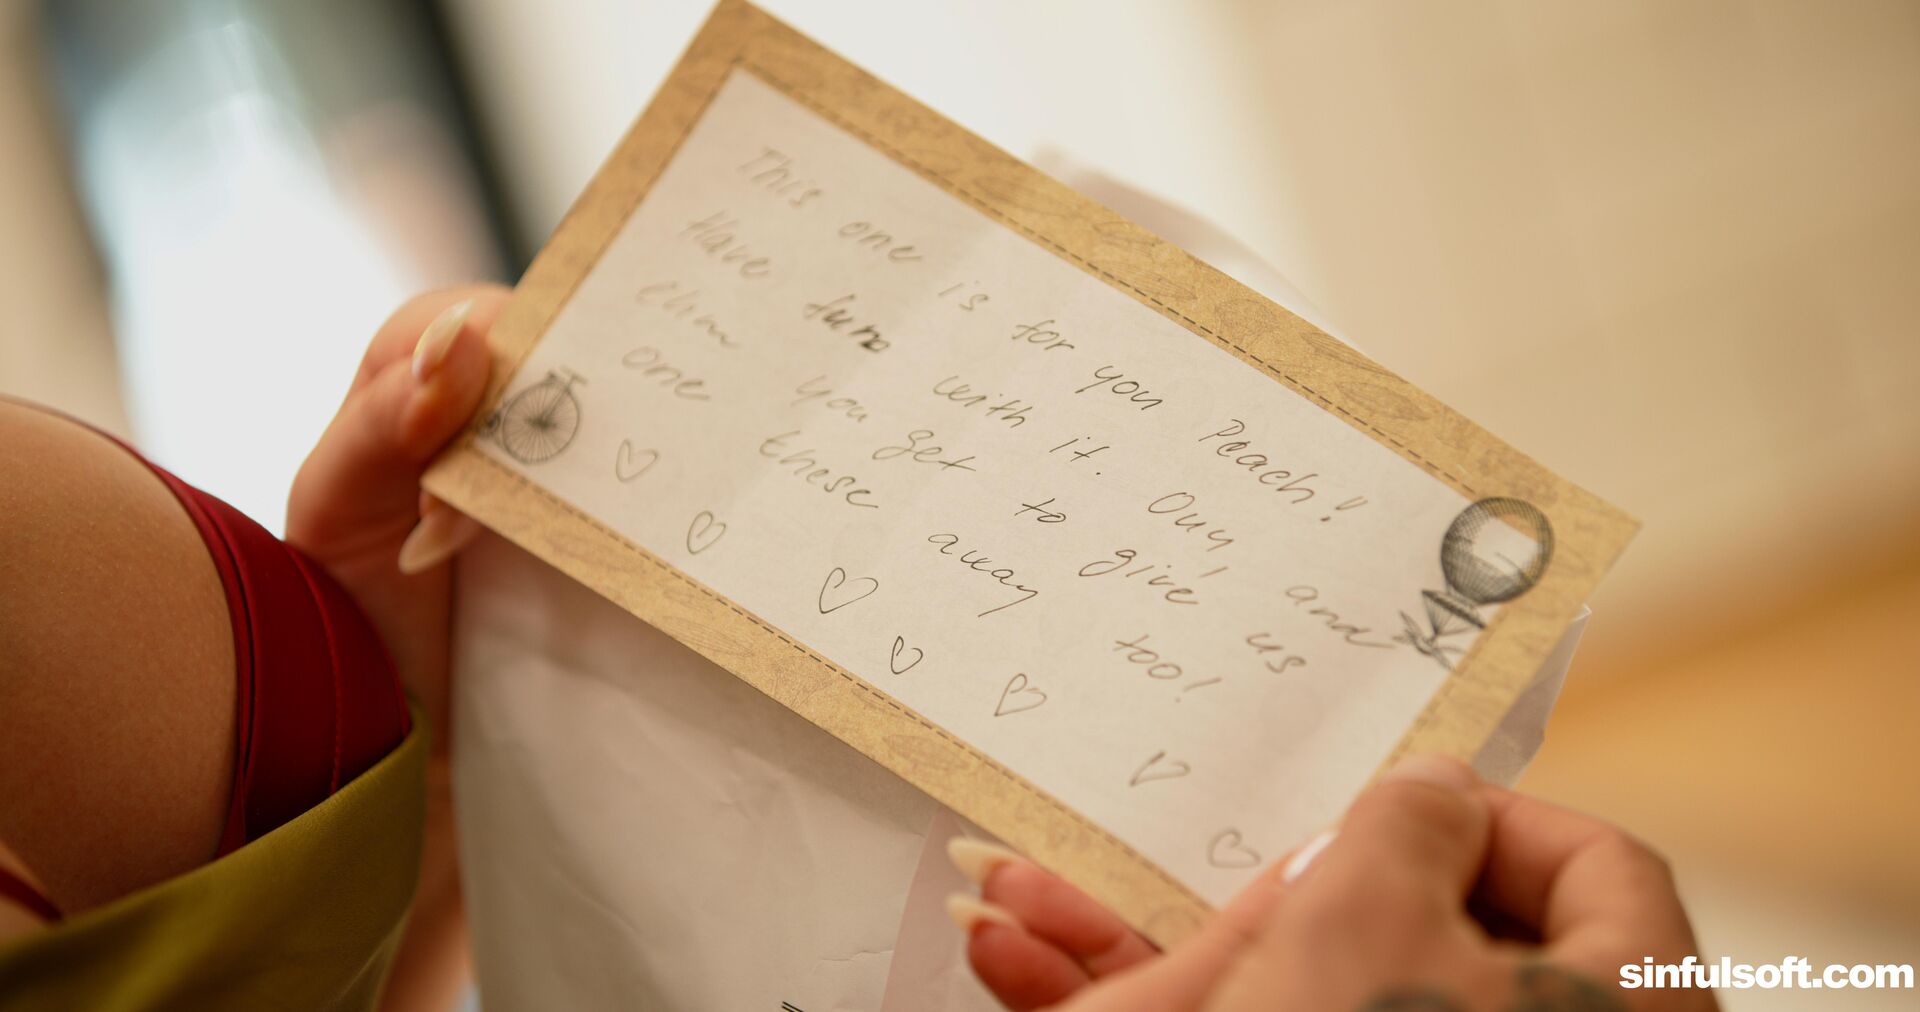 This one is for you Peach!
Have fun with it. and
you get to give us
one these away too!
sinfulsoft.com